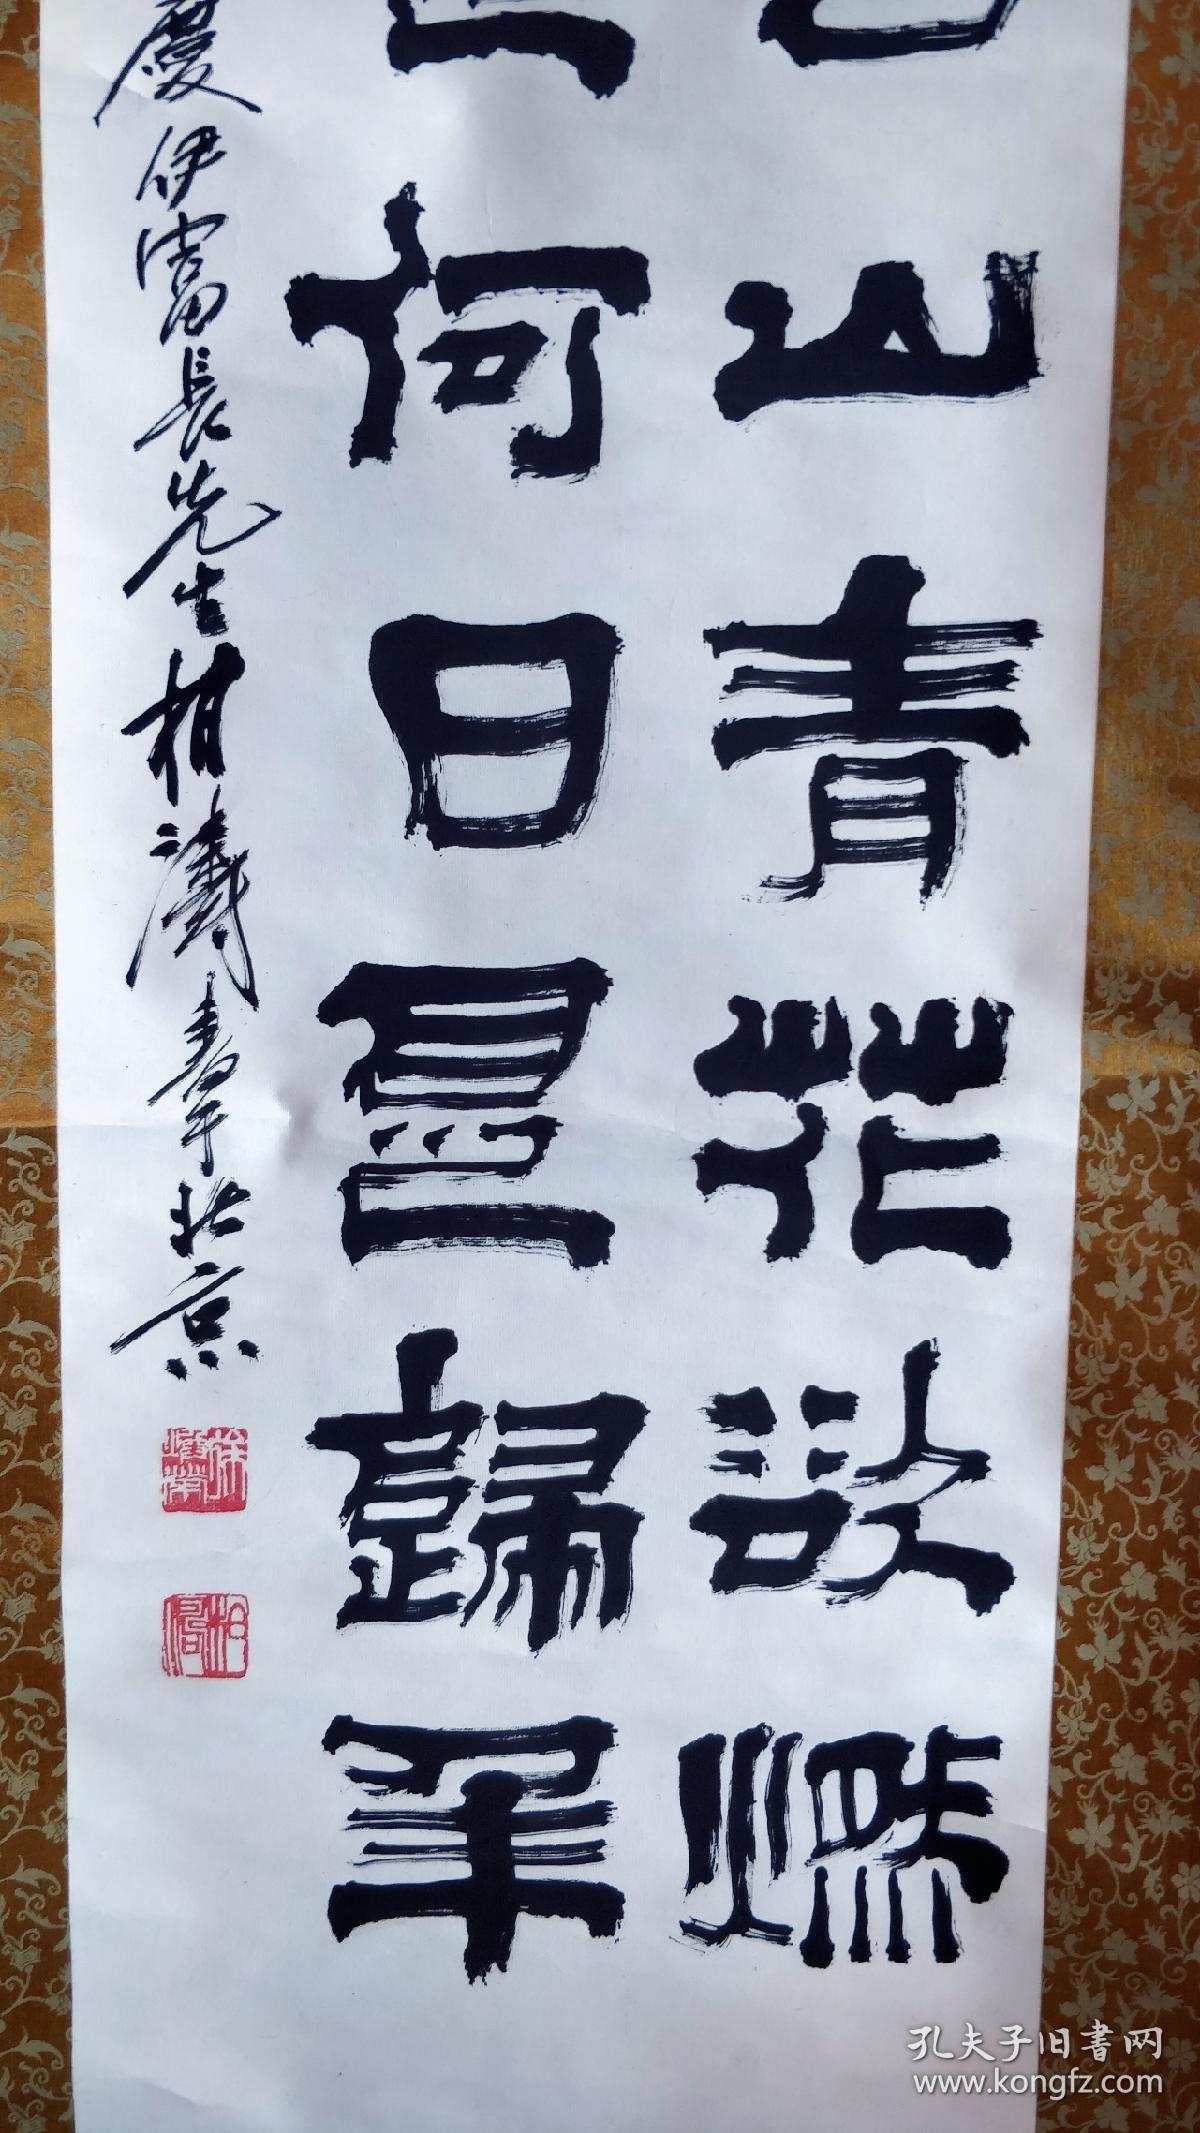 山青花欲燃
何日是歸年
慶伊富長先生柏濤書于北京
徐煥榮
柏濤
孔夫子旧书网
www.kongfz.com